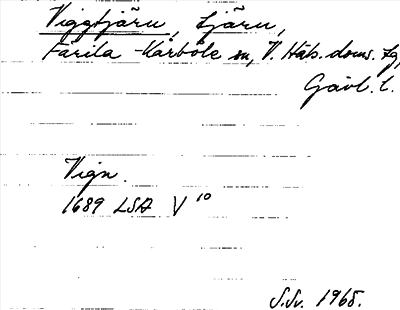 Viggtjärn, tjärn,
Färila-Kårböle sn, V. Häls. doms. tg,
Gävl. l.
Vign.
1689 LSA V 10
S.Sv. 1965.